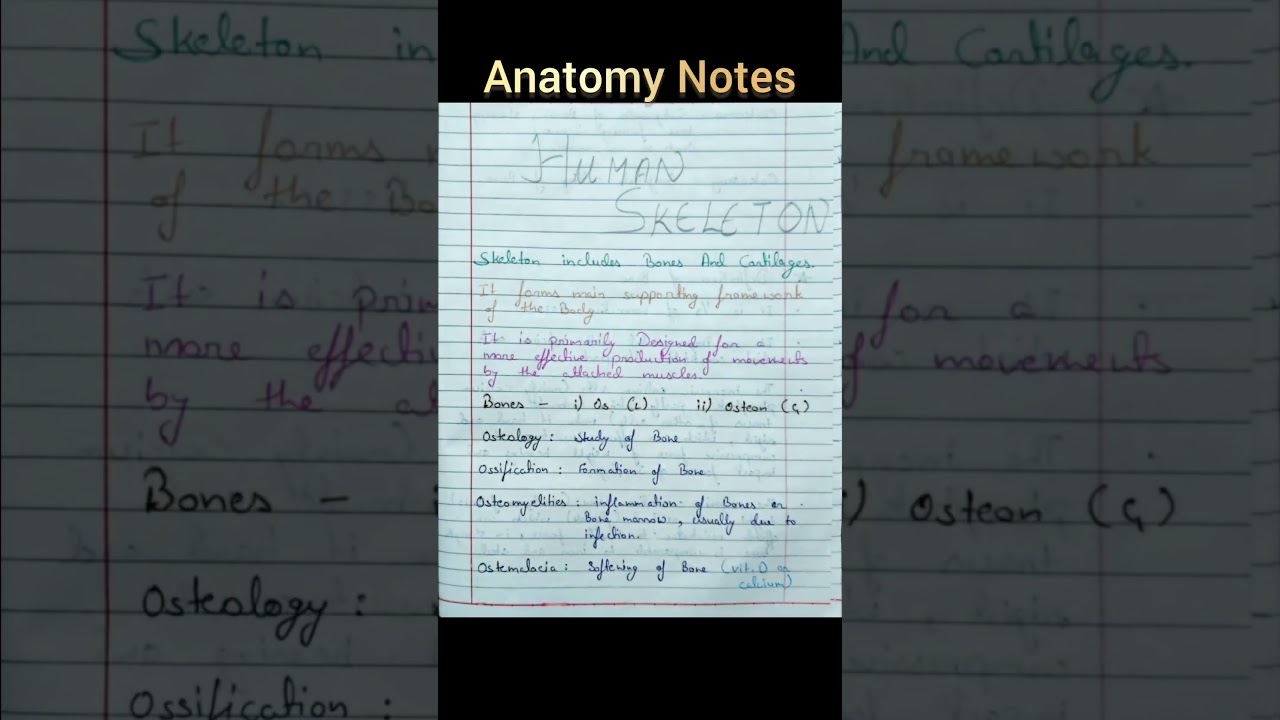 Anatomy Notes
HUMAN
SKELETON
Skeleton includes Bones And Cartilages.
It forms main supporting framework
of the Body
It is primarily Designed for a
more effective production of movements
by the attached muscles.
Bones - i) Os (L) ii) Osteon (G)
Osteology: Study of Bone
Ossification: Formation of Bone
Osteomyelities: inflammation of Bones or
Bone marrow, usually due to
infection.
Ostemalacia: Softening of Bone (vit. D or
calcium)